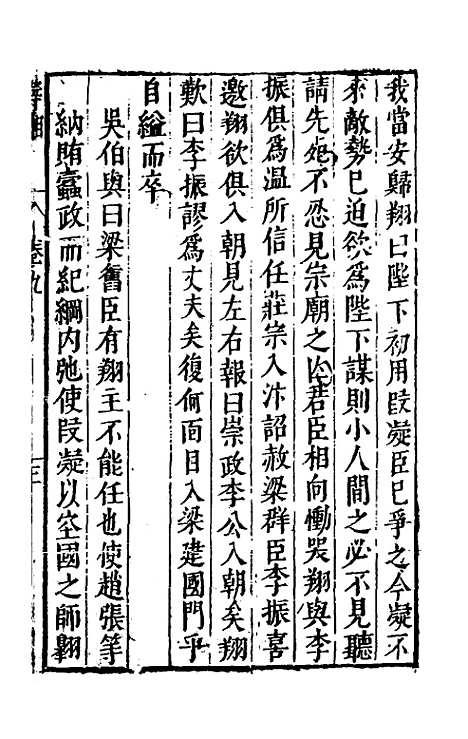 我當安歸翔曰陛下初用段凝臣巳爭之今凝不
來敵勢巳迫欲爲陛下謀則小人間之必不見聽
請先死不忍見宗廟之亡君臣相向慟哭翔與李
振俱爲温所信任莊宗入汴詔赦梁羣臣李振喜
邀翔欲俱入朝見左右報曰崇政李公入朝矣翔
歎曰李振謬爲丈夫矣復何面目入梁建國門乎
自縊而卒
吳伯與曰梁舊臣有翔主不能任也使趙張等
納賄蠹政而紀綱内弛使段凝以空國之師翺
卷九